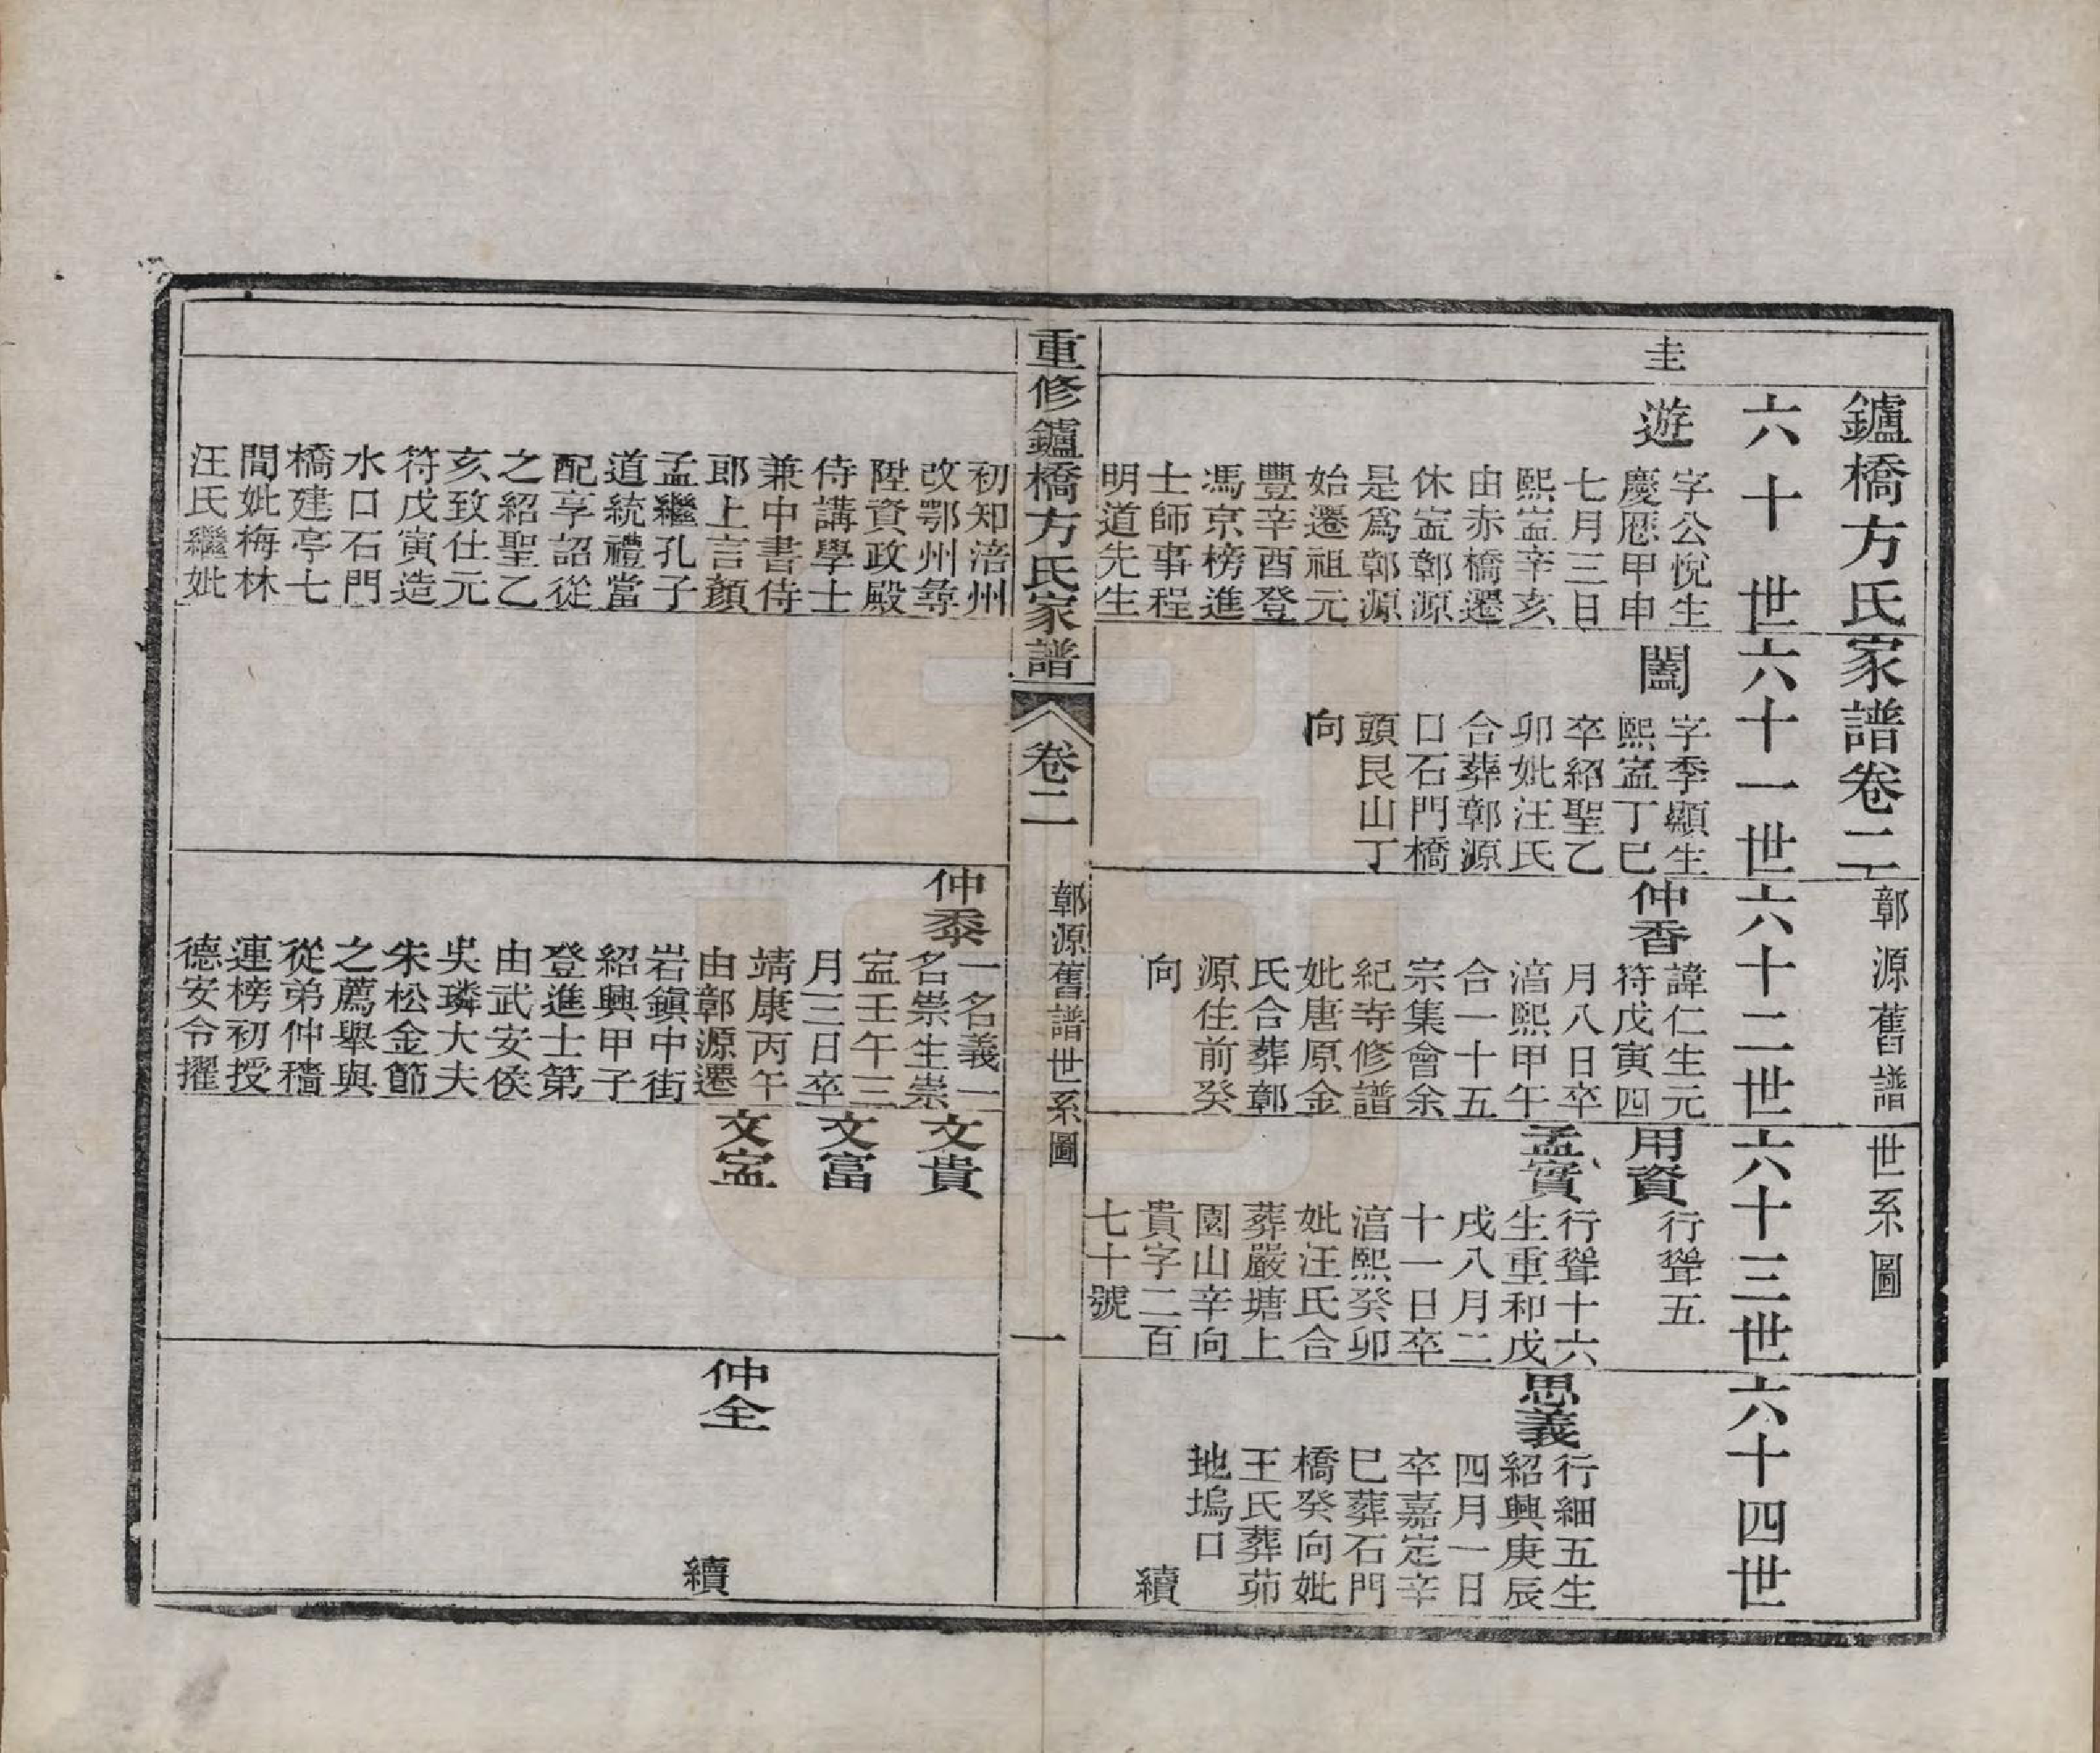 鑪橋方氏家譜卷二 鄣源舊譜 世系圖
六十世
六十一世
六十二世
六十三世
六十四世
圭
遊
字公悅生
慶厯甲申
七月三日
熙寍辛亥
由赤橋遷
休寍鄣源
是爲鄣源
始遷祖元
豐辛酉登
馮京榜進
士師事程
明道先生
闔
字季顯生
熙寍丁巳
卒紹聖乙
卯妣汪氏
合葬鄣源
口石門橋
頭艮山丁
向
仲香
諱仁生元
符戊寅四
月八日卒
湻熙甲午
合一十五
宗集會余
紀寺修譜
妣唐原金
氏合葬鄣
源住前癸
向
用資
行聳五
孟實
行聳十六
生重和戊
戌八月二
十一日卒
湻熙癸卯
妣汪氏合
葬嚴塘上
園山辛向
貴字二百
七十號
思義
行細五生
紹興庚辰
四月一日
卒嘉定辛
巳葬石門
橋癸向妣
王氏葬茆
地塢口
續
重修鑪橋方氏家譜
卷二
鄣源舊譜世系圖
一
初知涪州
改鄂州尋
陞資政殿
侍講學士
兼中書侍
郎上言顏
孟繼孔子
道統禮當
配享詔從
之紹聖乙
亥致仕元
符戊寅造
水口石門
橋建亭七
間妣梅林
汪氏繼妣
仲黍
一名義一
名崇生崇
寍壬午三
月三日卒
靖康丙午
由鄣源遷
岩鎮中街
紹興甲子
登進士第
由武安侯
吳璘大夫
朱松金節
之薦舉與
從弟仲穡
連榜初授
德安令擢
文貴
文富
文寍
仲全
續